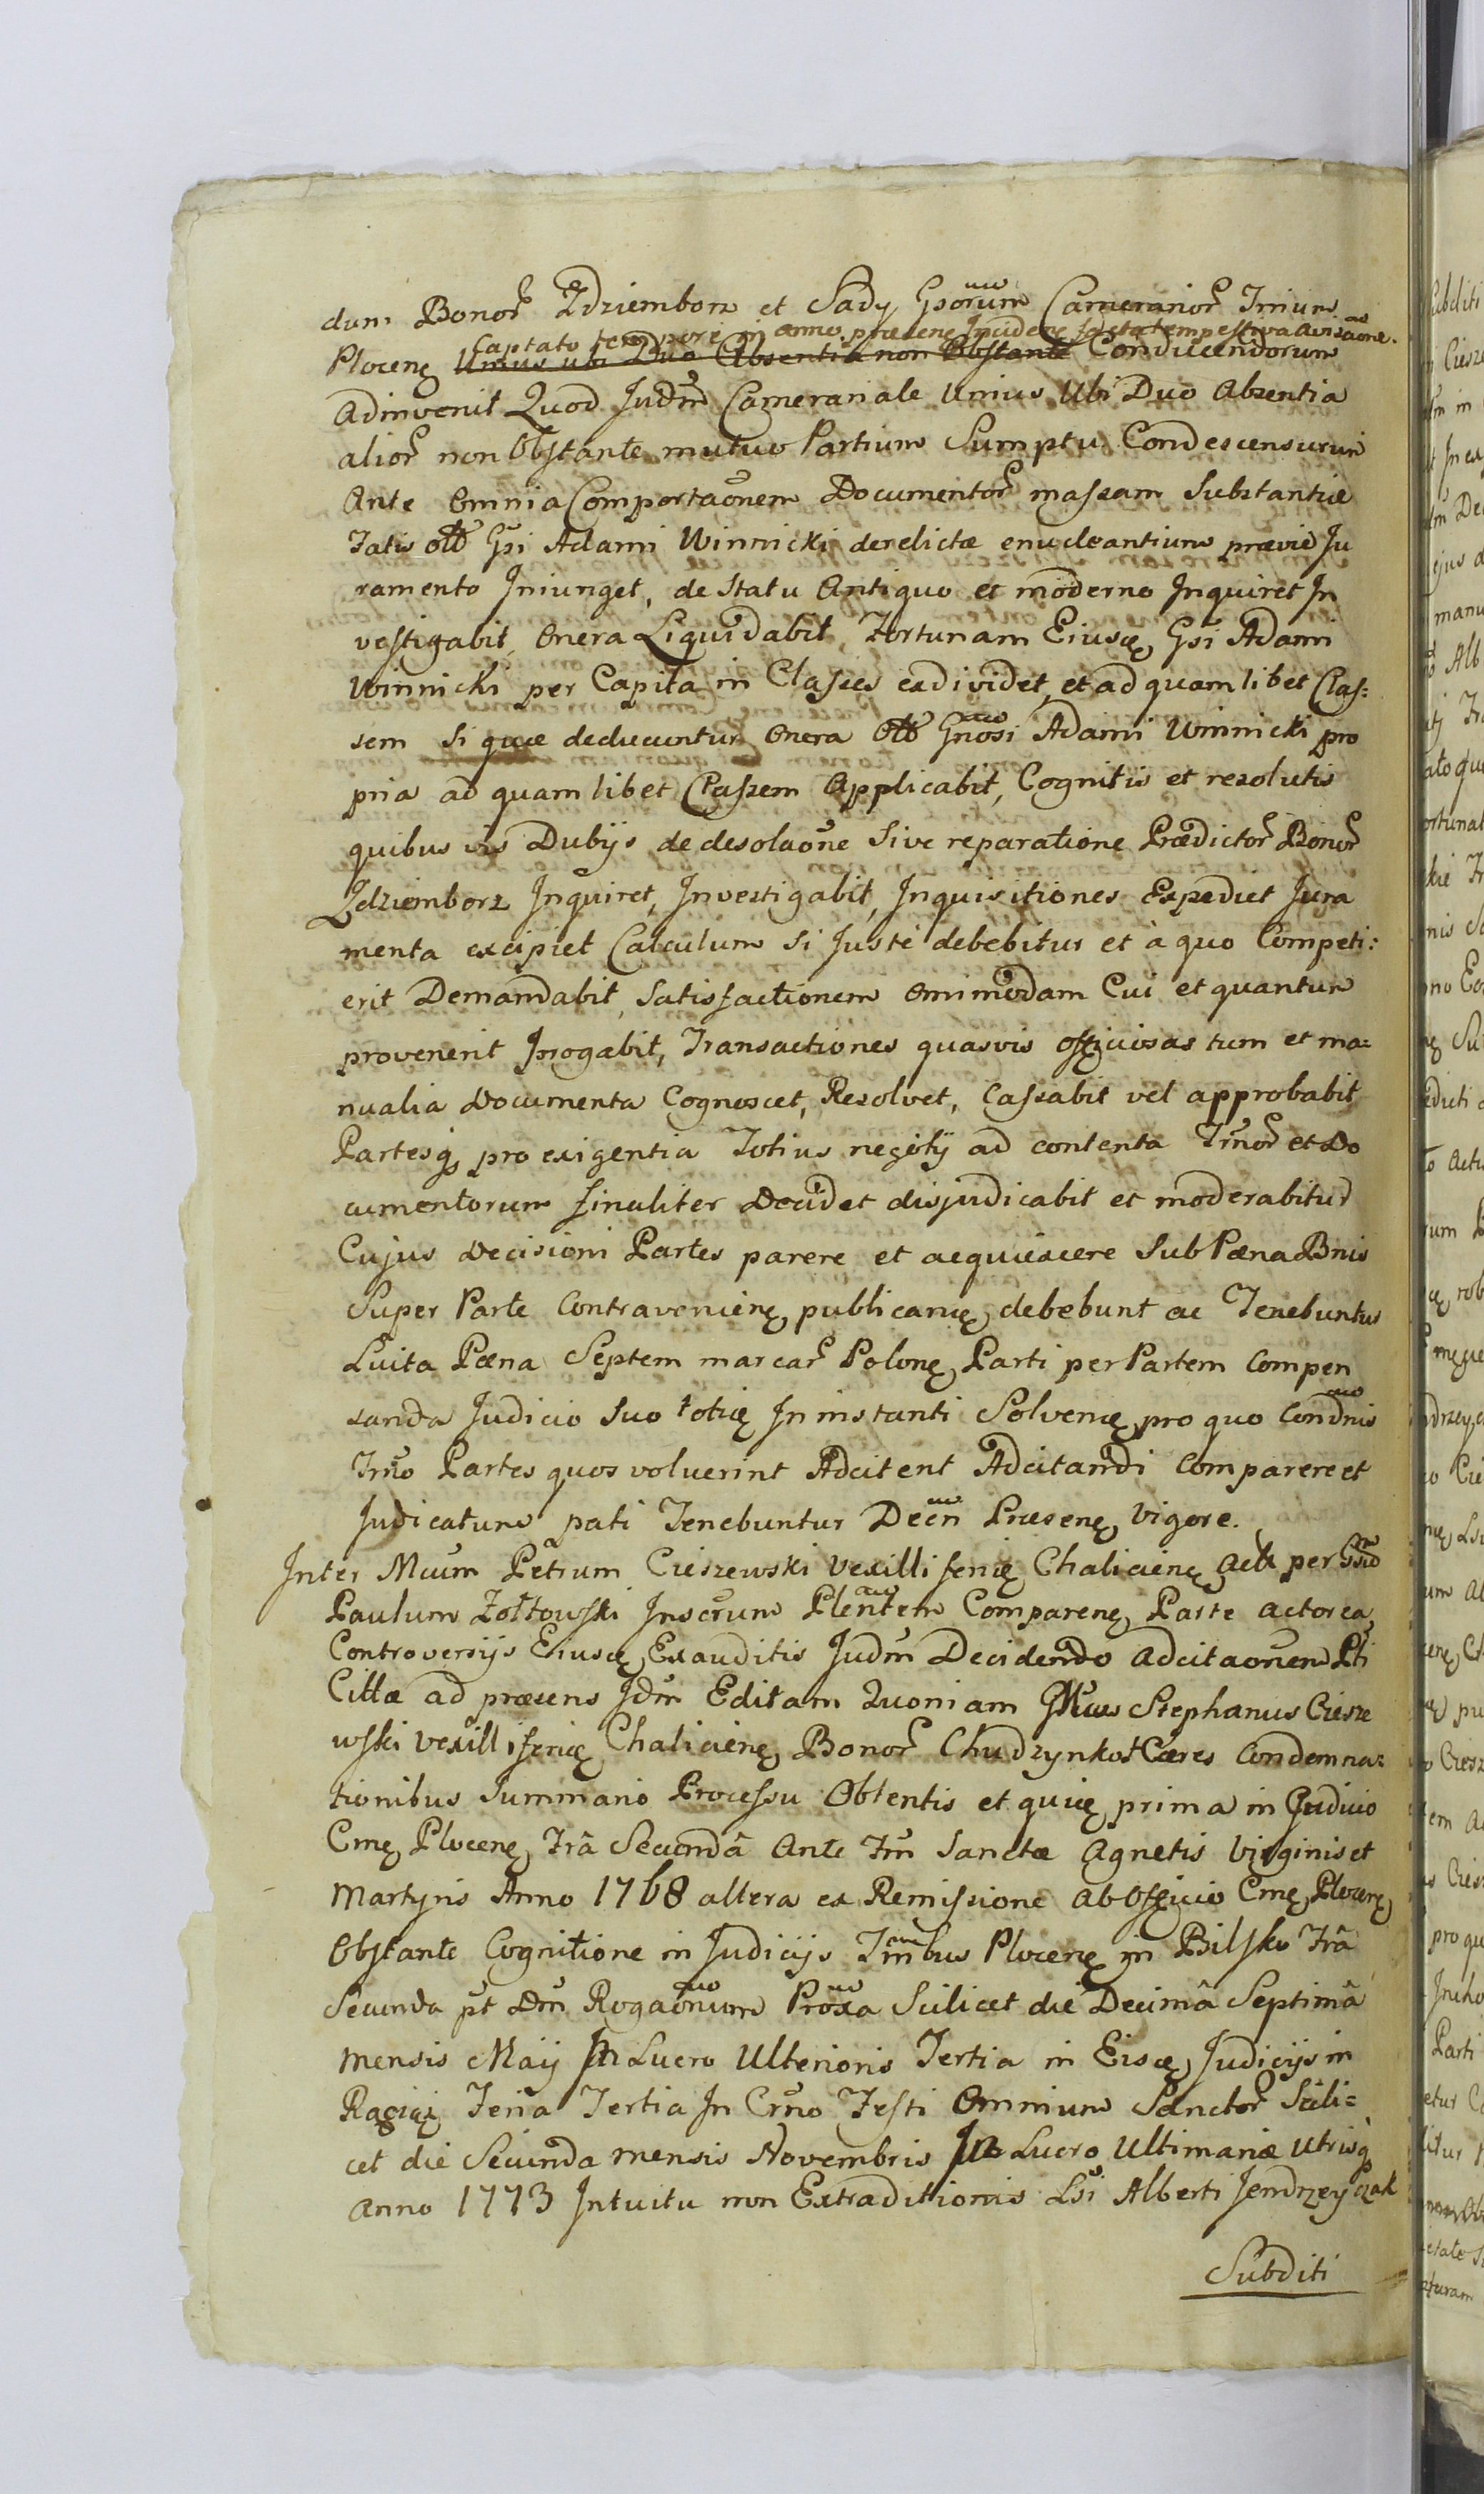 dum Bonor Zdziemborz et Sady Gsorum Camerarior Trium
Captato tempore in anno praesenę Incidenę facta tempestiva avisaõne.
Plocenę Unius ubi Duo Absentia non Obstante Conducendorum
Adinvenit Quod Judm̃ Camerariale Unius Ubi Duo Absentia
alior non Obstante mutuo Partium Sumptu Condescensurum
Ante Omnia Comportaõnem Documentor massam Substantiæ
Fatis olb Gsi Adami Winnicki derelictæ enucleantium prævio Ju
ramento Iniunget, de Statu Antiquo et moderno Inquiret In
vestigabit, Onera Liquidabit, Fortunam Eiuscę Gsi Adami
Winnicki per Capita in Classes exdividet, et ad quam libet Clas:
sem si quæ deducuntur Onera Olb Gnosi Adami Winnicki pro
pria ad quam libet Classem Applicabit, Cognitis et resolutis
quibus vis Dubijs de desolaõne Sive reparatione Prædictor Bonor
Zdziemborz Inquiret, Investigabit, Inquisitiones Expediet Jura
menta excipiet Calculum Si Juste debebitur et à quo Competi:
erit Demandabit, Satisfactionem Omimodam Cui et quantum
provenerit Irrogabit, Transactiones quasvis officiosas tum et ma:
nualia Documenta Cognoscet, Resolvet, Cassabit vel approbabit
Partesq pro exigentia Totius negotij ad contenta Trnor et Do
cumentorum finaliter Decidet disjudicabit et moderabitur
Cujus Decisioni Partes parere et acquiescere Sub Pæna Bnis
Super Parte Contravenienę publicanę debebunt ac Tenebuntur
Luita Pæna Septem marcar Polonę Parti per Partem Compen
sanda Judicio Suo totię In instanti Solvenę pro quo Condnis
Trno Partes quos voluerint Adcitent Adcitandi Comparere et
Judicatum pati Tenebuntur Decn Præsenę Vigore.
Inter Mcum Petrum Cieszewski Vexilliferię Chalicienę Act per Gsũ
Paulum Zołtowski Inscrum Plentem Comparenę Parte Actorea
Controversijs Eiuscę Exauditis Judm̃ Decidendo Adcitaõnem Pti
Cittæ ad præsens Jdm̃ Editam Quoniam Mcus Stephanus Ciesze
wski Vexilliferię Chalicienę Bonor Chudzynko Hæres Condemna:
tionibus Summario Processu Obtentis et quię prima in Judicio
Cmę Plocenę Frâ Secundâ Ante Fm̃ Sanctæ Agnetis Virginis et
Martyris Anno 1768 altera ex Remissione ab Officio Cmę Plocenę
Obstante Cognitione in Judicijs Trnibus Plocenę in Bilsko Frâ
Secunda pt Dm̃ Rogaonum Proxa Scilicet die Decimâ Septimâ
mensis Maij In Lucro Ulterioris Tertia in Eiscę Judicijs in
Raciąż Feria Tertia In Crno Festi Omnium Sanctor Scili=
cet die Secunda mensis Novembris In Lucro Ultimariæ utrisq
Anno 1773 Intuitu non Extraditionis Lsi Alberti Jendrzeyczak
Subditi